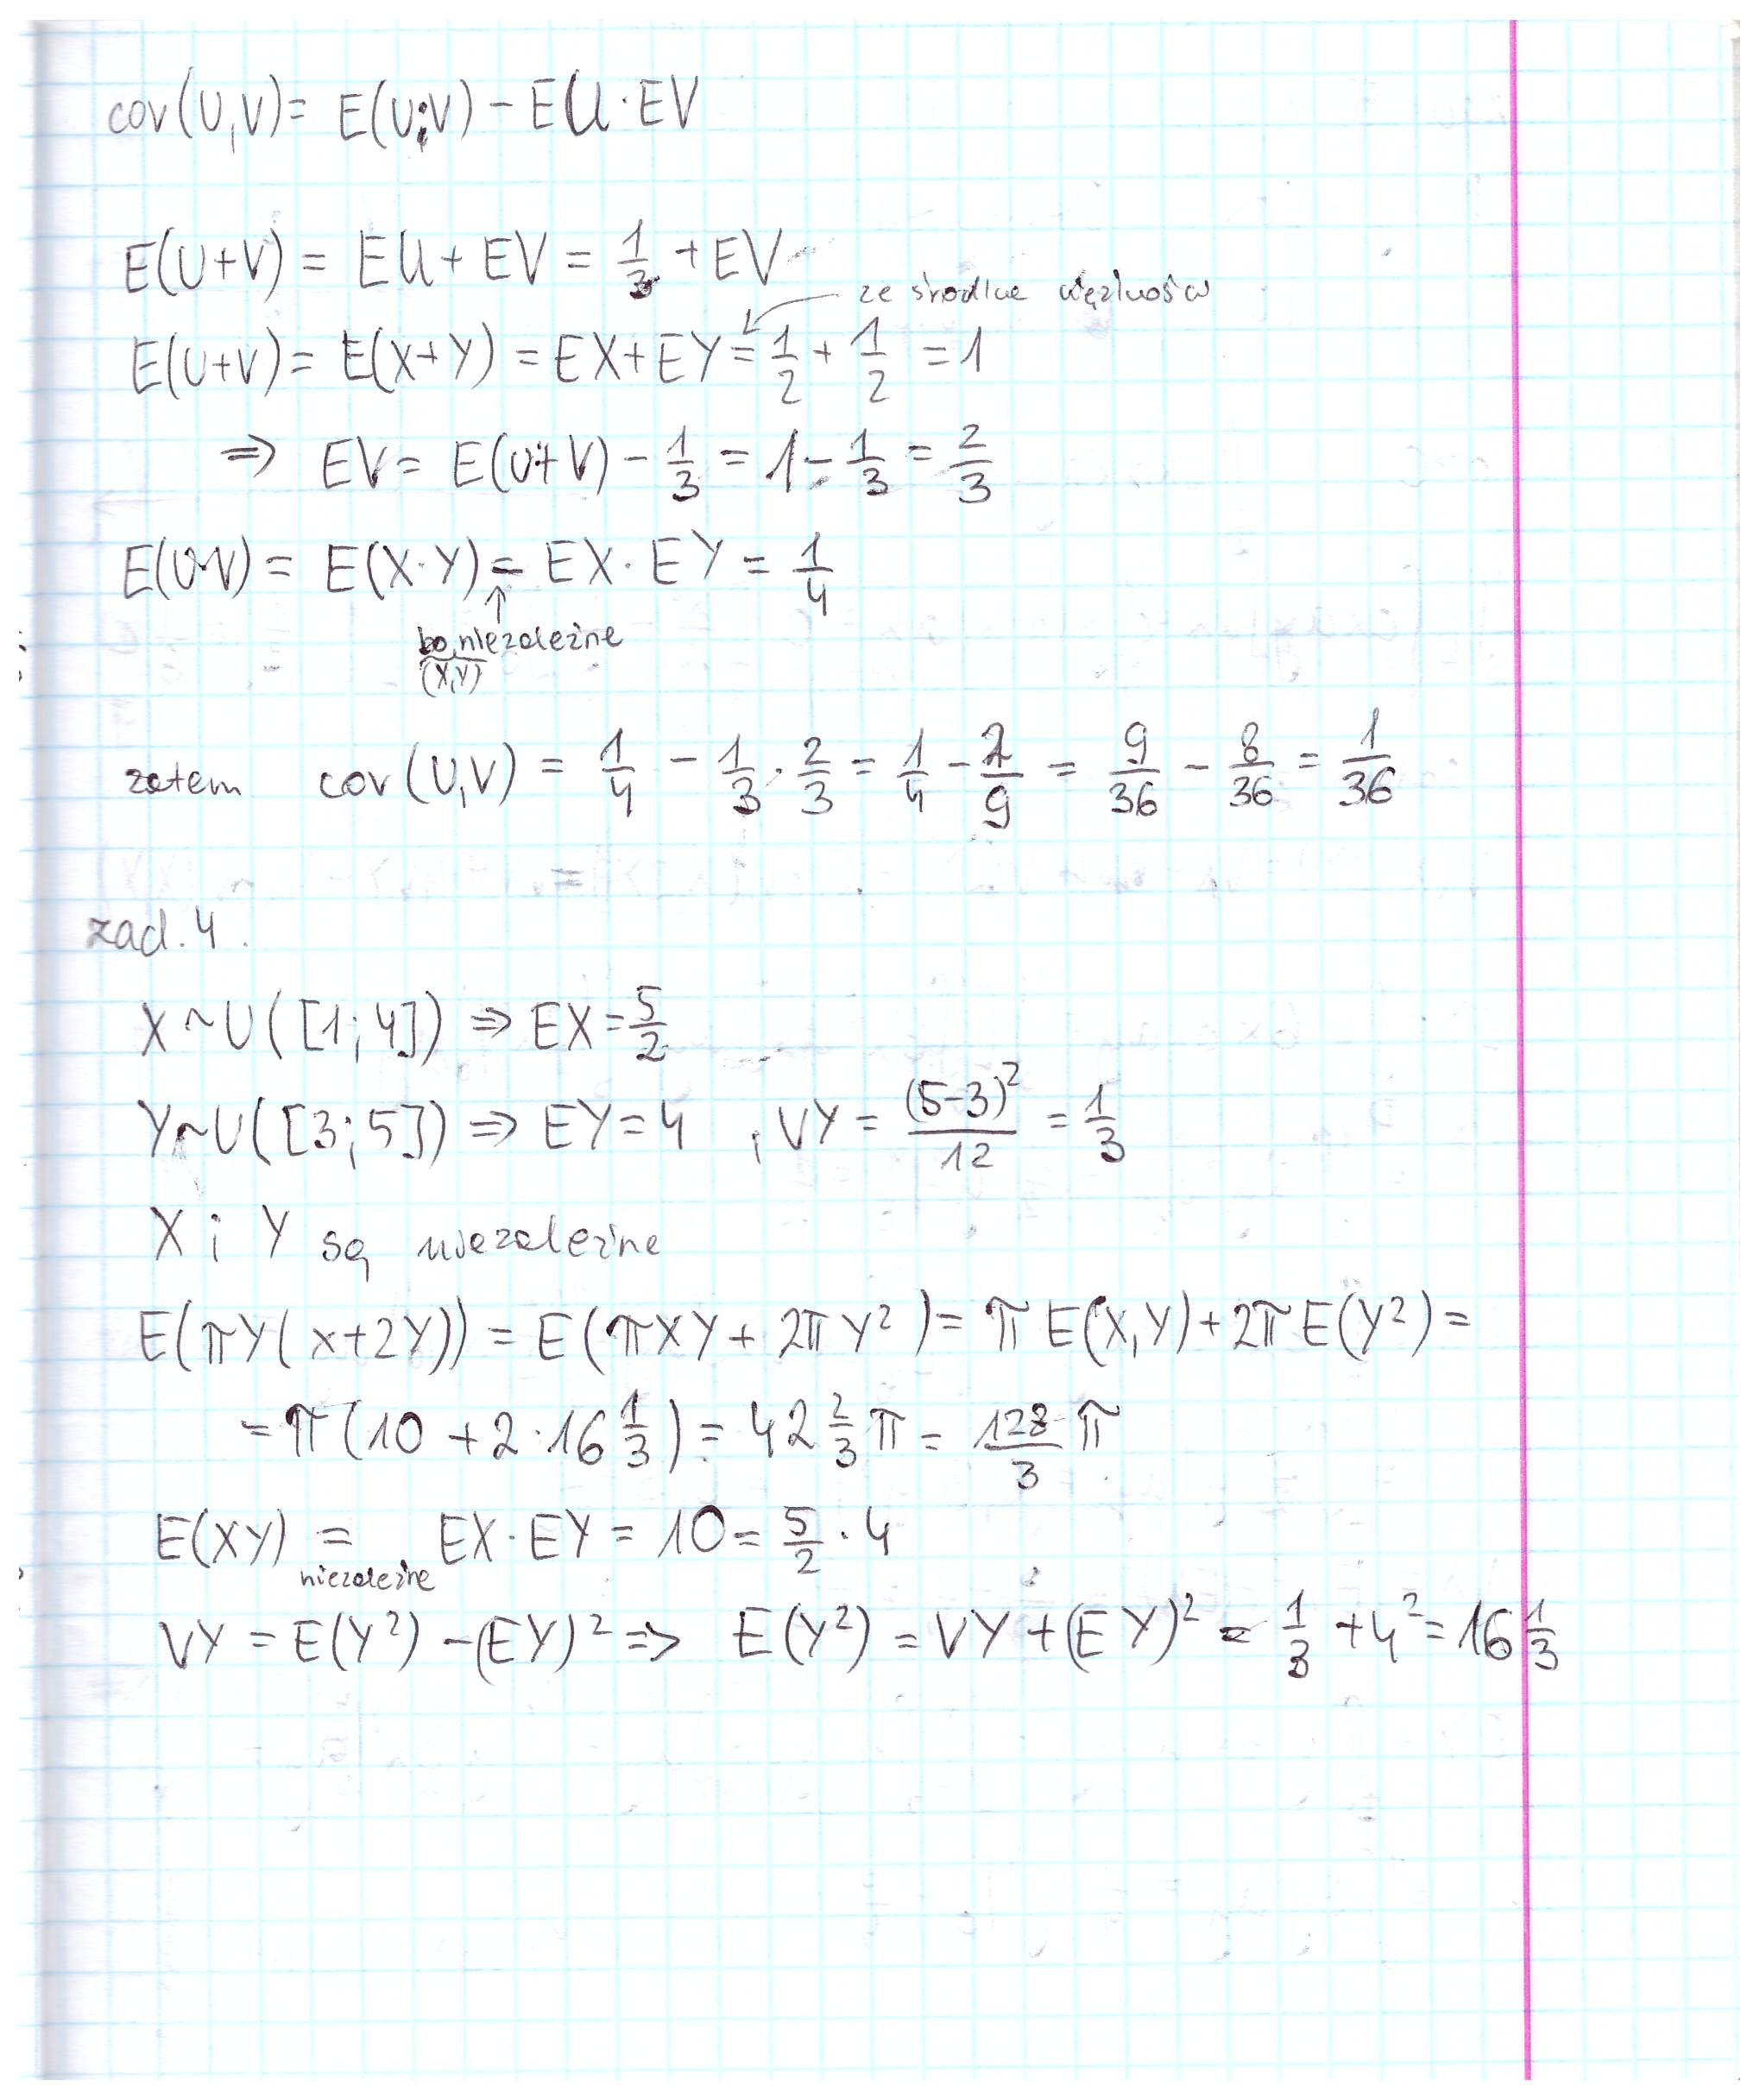 cov(U,V) = E(U·V) - EU·EV
E(U+V) = EU + EV = 1/3 + EV
ze środków ciężkości
E(U+V) = E(X+Y) = EX + EY = 1/2 + 1/2 = 1
⇒ EV = E(U+V) - 1/3 = 1 - 1/3 = 2/3
E(U·V) = E(X·Y) = EX·EY = 1/4
↑
bo niezależne
(X,Y)
zatem cov(U,V) = 1/4 - 1/3 · 2/3 = 1/4 - 2/9 = 9/36 - 8/36 = 1/36
zad. 4.
X ~ U([1;4]) ⇒ EX = 5/2
Y ~ U([3;5]) ⇒ EY = 4 , VY = (5-3)²/12 = 1/3
X i Y są niezależne
E(πY(X+2Y)) = E(πXY + 2πY²) = πE(X,Y) + 2πE(Y²) =
= π(10 + 2·16 1/3) = 42 2/3 π = 128/3 π
E(XY) = EX·EY = 10 = 5/2 · 4
niezależne
VY = E(Y²) - (EY)² ⇒ E(Y²) = VY + (EY)² = 1/3 + 4² = 16 1/3